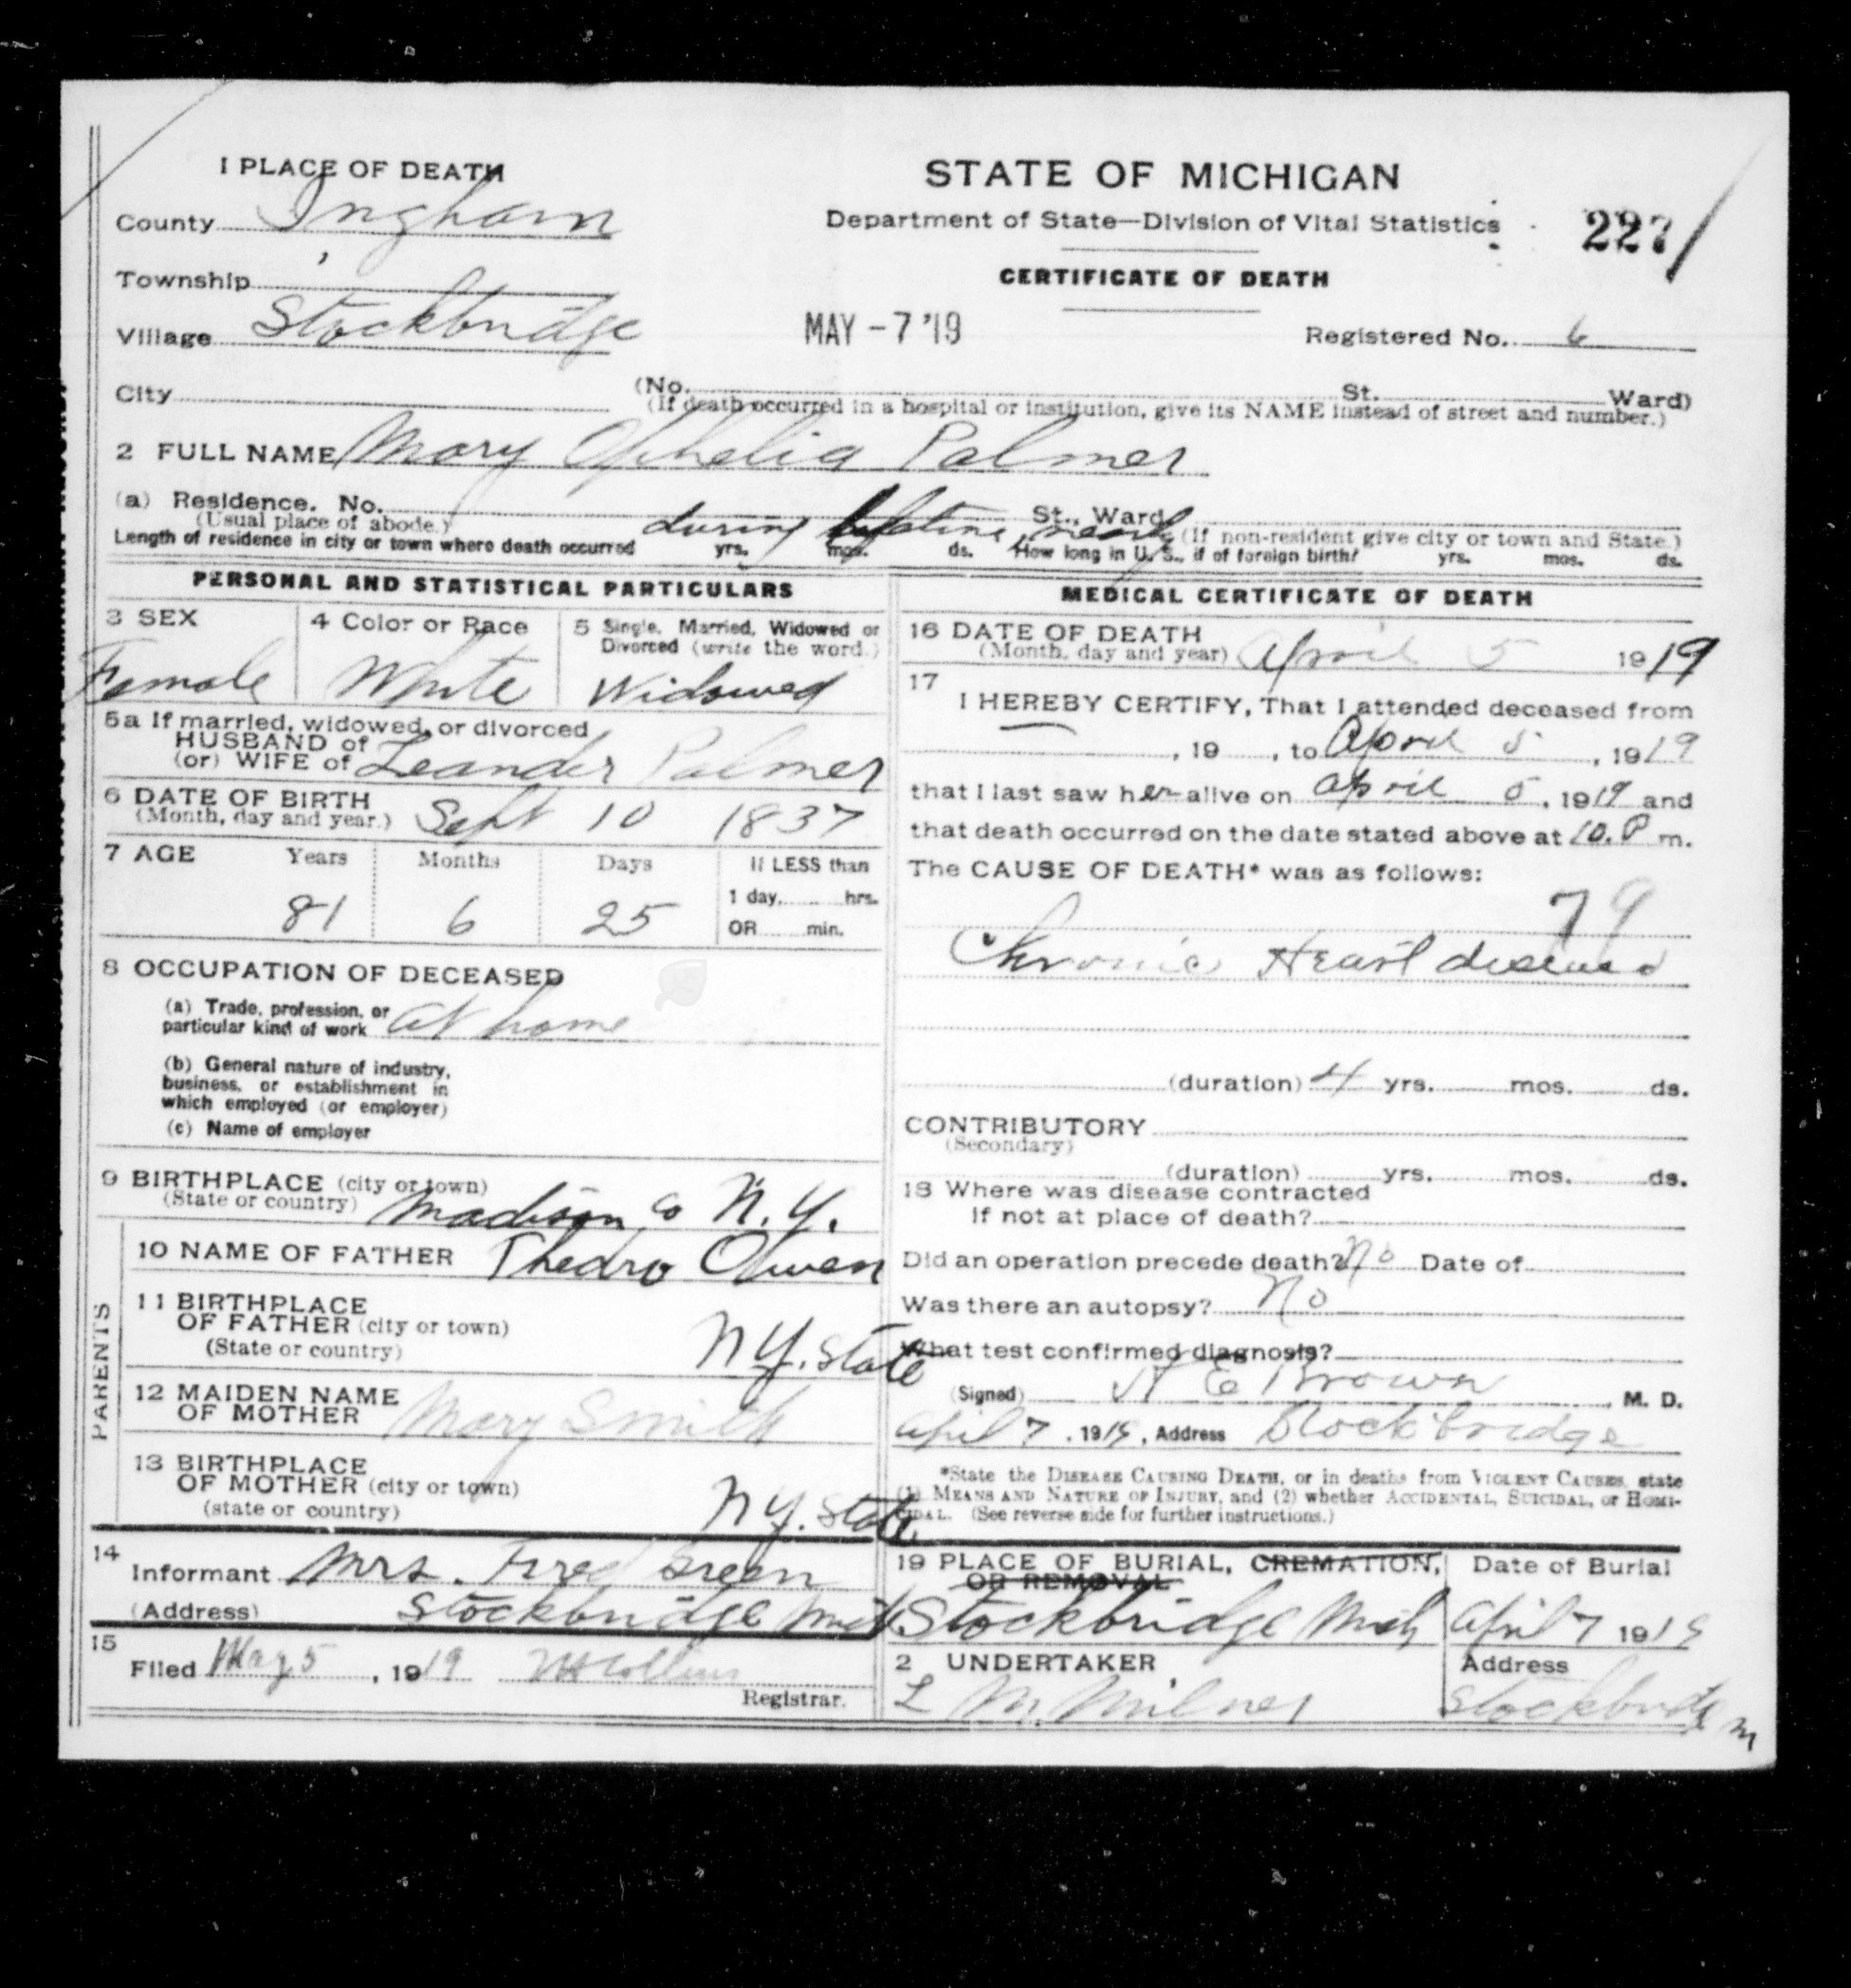 1 PLACE OF DEATH
County Ingham
Township
Village Stockbridge
City
STATE OF MICHIGAN
Department of State—Division of Vital Statistics
227
CERTIFICATE OF DEATH
MAY -7 '19
Registered No. 6
(No. St. Ward)
(If death occurred in a hospital or institution, give its NAME instead of street and number.)
2 FULL NAME Mary Ophelia Palmer
(a) Residence. No. St., Ward
(Usual place of abode.) during lifetime, nearly (If non-resident give city or town and State.)
Length of residence in city or town where death occurred yrs. mos. ds. How long in U. S., if of foreign birth? yrs. mos. ds.
PERSONAL AND STATISTICAL PARTICULARS
3 SEX
Female
4 Color or Race
White
5 Single, Married, Widowed or
Divorced (write the word.)
Widowed
5a If married, widowed, or divorced
HUSBAND of
(or) WIFE of Leander Palmer
6 DATE OF BIRTH
(Month, day and year.) Sept 10 1837
7 AGE Years Months Days If LESS than
1 day, hrs.
81 6 25 OR min.
8 OCCUPATION OF DECEASED
(a) Trade, profession, or
particular kind of work At home
(b) General nature of industry,
business, or establishment in
which employed (or employer)
(c) Name of employer
9 BIRTHPLACE (city or town)
(State or country) Madison Co N.Y.
PARENTS
10 NAME OF FATHER Thedro
11 BIRTHPLACE
OF FATHER (city or town)
(State or country) N Y. State
12 MAIDEN NAME
OF MOTHER Mary Smith
13 BIRTHPLACE
OF MOTHER (city or town)
(state or country) N Y. State
14
Informant Mrs. Fred Green
(Address) Stockbridge Mich
15
Filed May 5, 1919 Collins
Registrar.
MEDICAL CERTIFICATE OF DEATH
16 DATE OF DEATH
(Month, day and year) April 5 1919
17
I HEREBY CERTIFY, That I attended deceased from
, 19 , to April 5 , 1919
that I last saw her alive on April 5, 1919 and
that death occurred on the date stated above at 10. P m.
The CAUSE OF DEATH* was as follows:
79
Chronic Heart disease
(duration) 4 yrs. mos. ds.
CONTRIBUTORY
(Secondary)
(duration) yrs. mos. ds.
18 Where was disease contracted
if not at place of death?
Did an operation precede death? No Date of
Was there an autopsy? No
What test confirmed diagnosis?
(Signed) E Brown, M. D.
April 7, 1919, Address Stockbridge
*State the DISEASE CAUSING DEATH, or in deaths from VIOLENT CAUSES, state
(1) MEANS AND NATURE OF INJURY, and (2) whether ACCIDENTAL, SUICIDAL, or HOMI-
CIDAL. (See reverse side for further instructions.)
19 PLACE OF BURIAL, CREMATION,
OR REMOVAL
Stockbridge Mich
Date of Burial
April 7 1919
2 UNDERTAKER
L M. Milner
Address
Stockbridge M